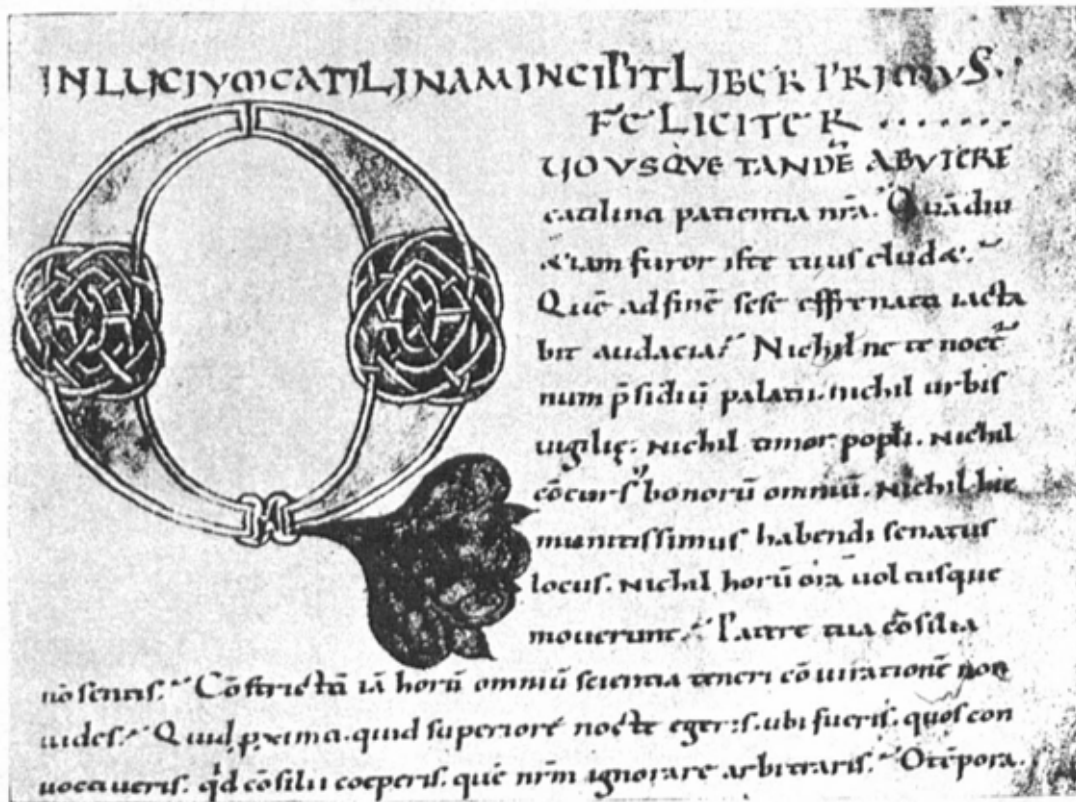 IN LUCIVM CATILINAM INCIPIT LIBER PRIMVS.
FELICITER.......
QUOVSQVE TANDĒ ABVTERE
catilina patientia nr̄a. Quādiu
&iam furor iste tuus elud&.
Quē ad finē sese effrenata iacta
bit audacia? Nichil ne te noct̄
num p̄sidiū palatii. nichil urbis
uigilię. Nichil timor popl̄i. Nichil
cōcurs' bonorū omniū. Nichil hic
munitissimus habendi senatus
locus. Nichil horū ora uoltusque
mouerunt. Patere tua cōsilia
nō sentis. Cōstrictā iā horū omniū scientia teneri cōiurationē non
uides. Quid p̱xima. quid superiorē nocte egeris. ubi fueris. quos con
uocaueris. qd cōsilii coeperis. quē nr̄m ignorare arbitraris. O tēpora.